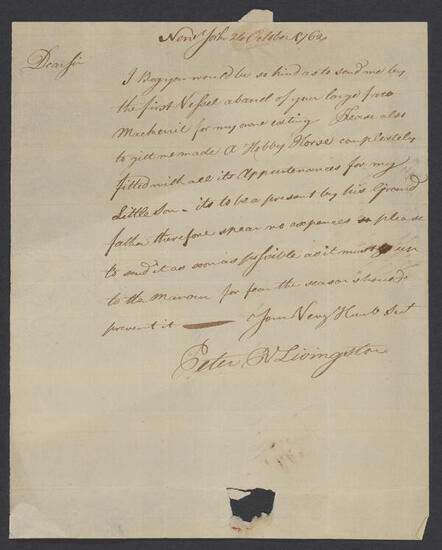 New York 24 October 1762
Dear Sir
I Beg you would be so kind as to send me by
the first Vessel a barrel of your large fatt
Mackeril for my owne eating Please also
to gitt me made A Hobby Horse compleately
fitted with all its Appurtenances for my
Little Son - its to be a present by his Grand
father therefore spear no expences & please
to send it as soon as possible as it must go up
to the Mannor for fear the season should
prevent it — Your Very Humb Sert
Peter R Livingston